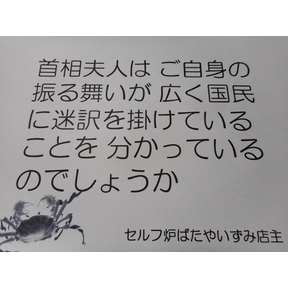 首相夫人は ご自身の
振る舞いが 広く国民
に迷訳を掛けている
ことを 分かっている
のでしょうか
セルフ炉ばたやいずみ店主